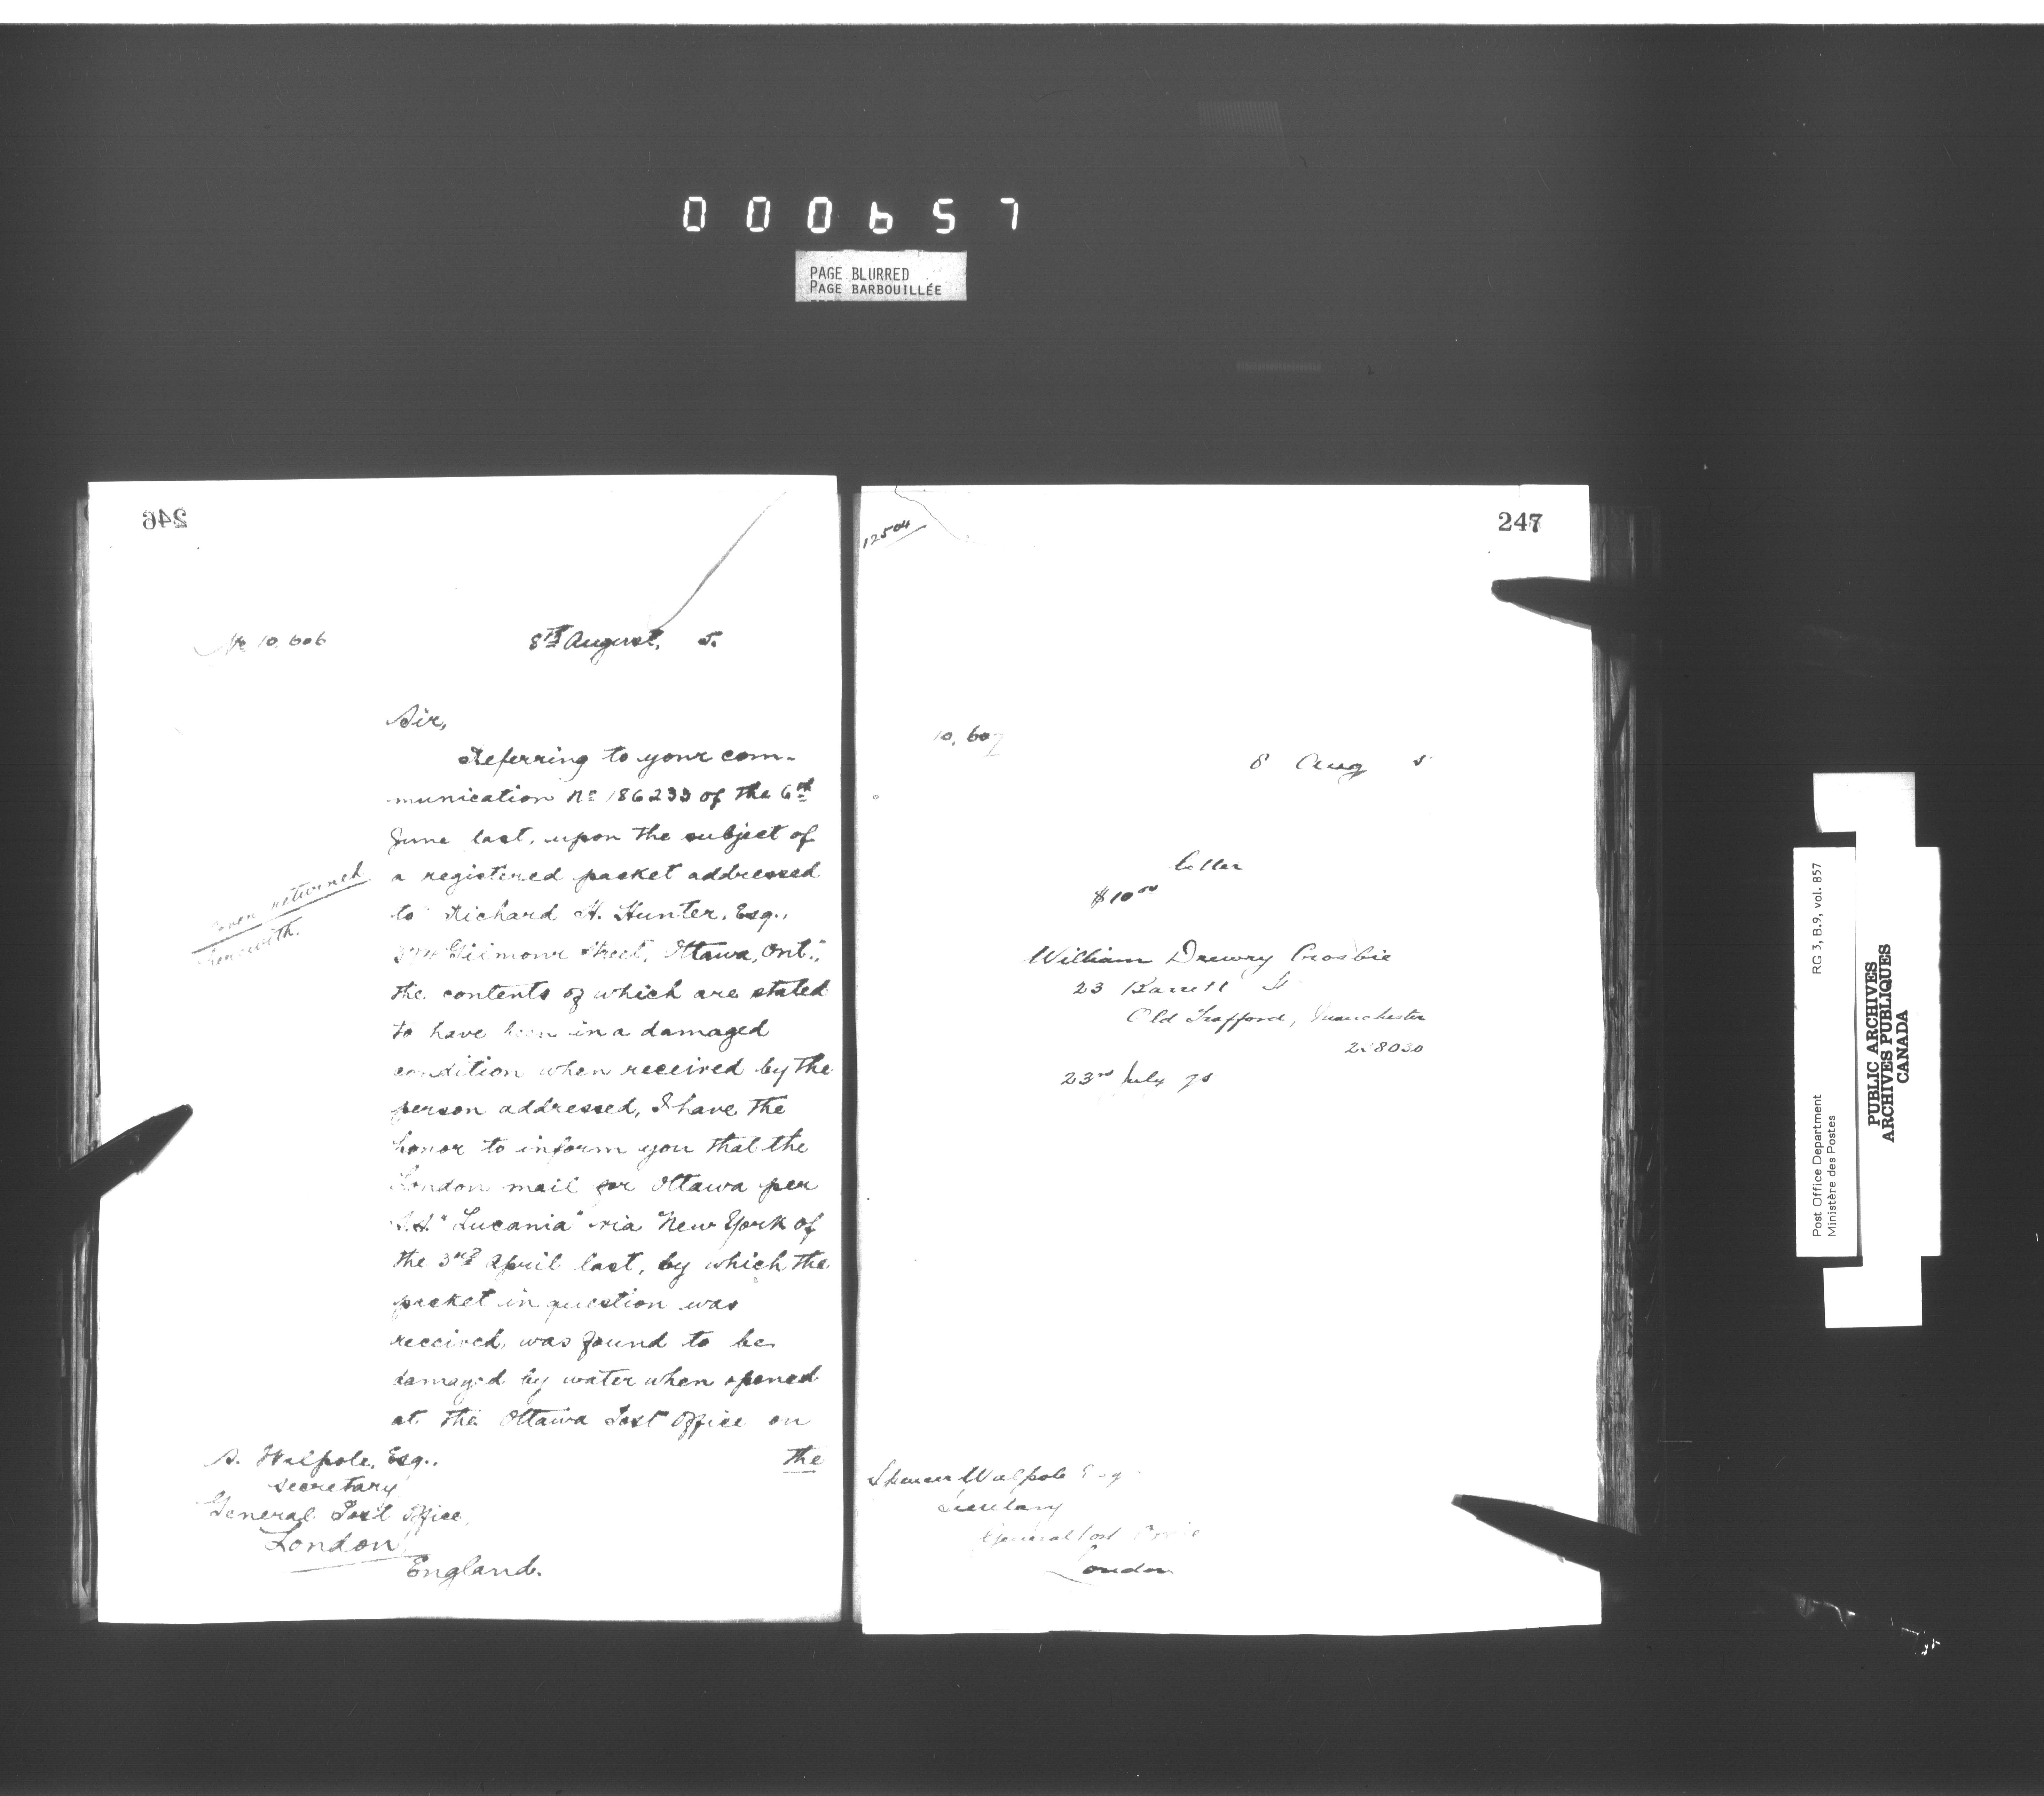 000657
PAGE BLURRED
PAGE BARBOUILLÉE
246
No 10,606
8th August, 5.
Sir,
Referring to your com-
munication No 186233 of the 6th
June last, upon the subject of
a registered packet addressed
to "Richard H. Hunter, Esq.,
Gilmour Street, Ottawa, Ont.",
the contents of which are stated
to have been in a damaged
condition when received by the
person addressed, I have the
honor to inform you that the
London mail for Ottawa per
S.S. "Lucania" via New York of
the 3rd April last, by which the
packet in question was
received, was found to be
damaged by water when opened
at the Ottawa Post Office on
the
Cover returned
herewith.
S. Walpole, Esq.,
Secretary
General Post Office,
London
England.
12504
247
10,607
8 Aug 5
Letter
$10.00
William Drewry Crosbie
23 Barrett St
Old Trafford, Manchester
23rd July 95
Spencer Walpole Esq
Secretary
General Post Office
London
Post Office Department
Ministère des Postes
RG 3, B.9, vol. 857
PUBLIC ARCHIVES
ARCHIVES PUBLIQUES
CANADA